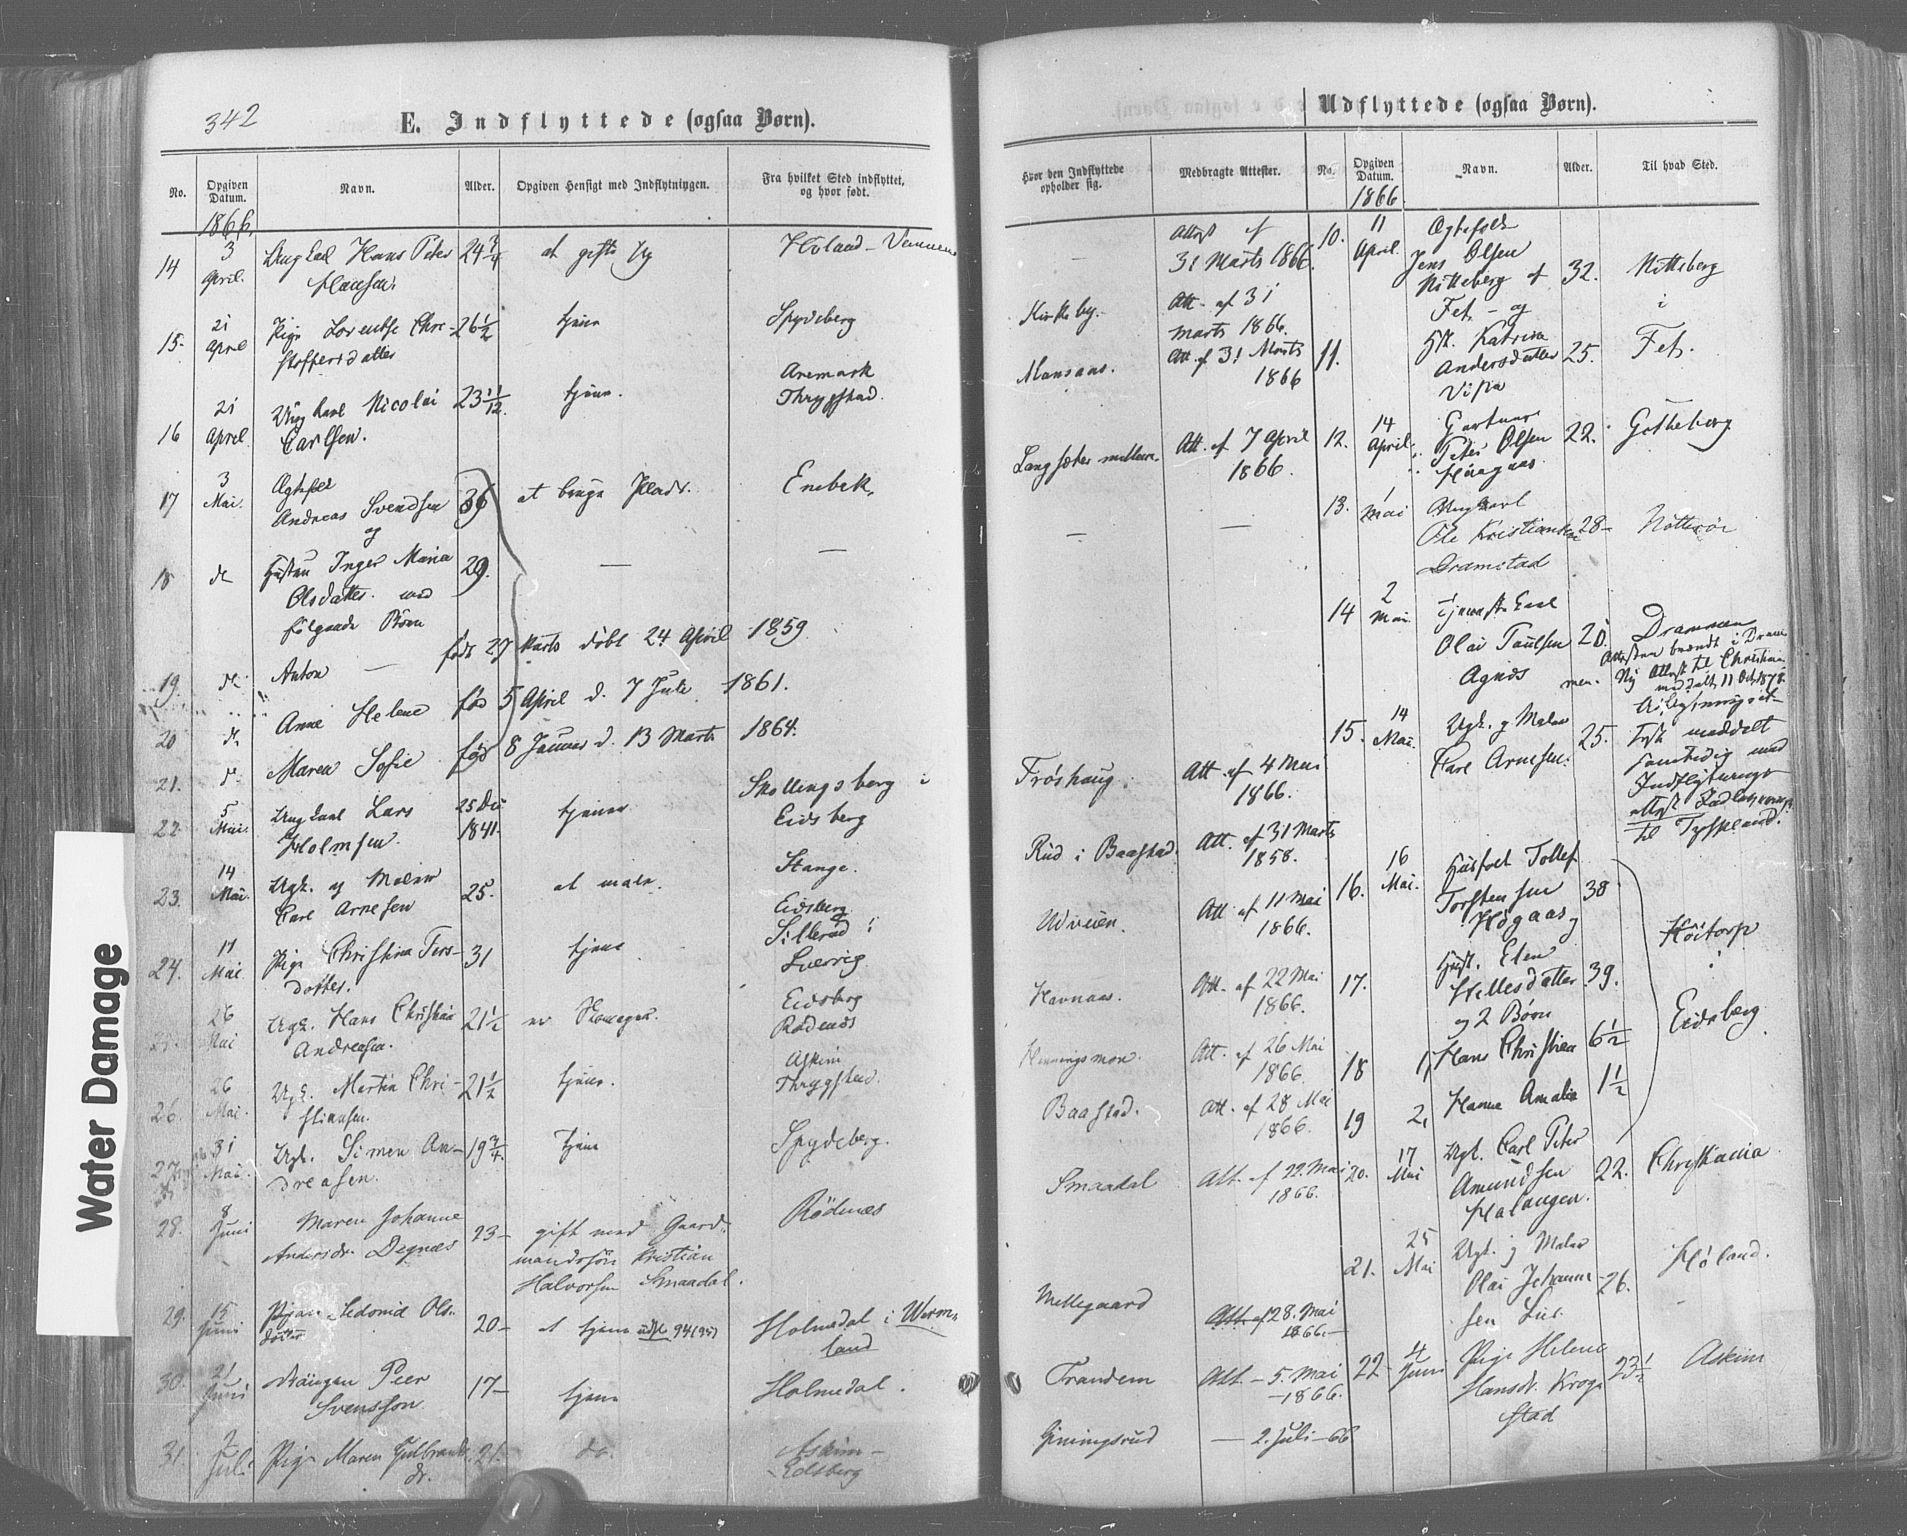 342
E. Indflyttede (ogsaa Børn).
No.
Opgiven Datum.
Navn.
Alder.
Opgiven Hensigt med Indflytningen.
Fra hvilket Sted indflyttet, og hvor født.
1866.
14
3 April.
Ungkarl Hans Peter
Hansen
24 3/4
at gifte sig
Høland
15.
21 April
Pige Lorentse Chri-
stoffersdatter
26 1/2
tjene
Spydeberg
16
21 April
Ungkarl Nicolai
Carlsen.
23 1/12.
tjene.
Aremark
Thrygstad.
17
3 Mai.
Ægtefol
Andreas Svendsen
og
36
at bruge Plads.
Enebak.
18
do
Hustru Inger Maria
Olsdatter med
følgende Børn
29.
19.
do
Anton — født 27 Marts døbt 24 April 1859.
20
do
Anne Helene fød 5 April d. 7 Juli 1861.
21.
do
Maren Sofie fød 8 Januar d. 13 Marts 1864.
22.
5 Mai.
Ungkarl Lars
Holmsen.
25 De
1841.
tjener
Skollingsberg i
Eidsberg
23.
14 Mai.
Ugk. og Maler
Carl Arnesen
25.
at male.
Stange.
24.
17 Mai
Pige Christina Ters-
dotter.
31
tjene
Eidsberg
Sillerud i
Sverrig
26 Mai
Ugk. Hans Christian
Andreasen.
21 1/2
Eidsberg
Rødenæs
26.
26 Mai.
Ugk. Martin Chri-
stiansen.
21 1/2
tjene.
Askim
Thrygstad.
27
31 Mai.
Ugk. Simen An-
dreasen.
19 3/4.
tjene
Spydeberg.
28.
8 Juni
Maren Johanne
Andersdr. Degnæs
23-
gift med Gaard-
mandssøn Kristian
Halvorsen Smaadal.
Rødenæs
29.
15 Juni
Pigen Sedonia Ols-
dotter
20-
at tjene udfl. 94(95)
Holmedal i Werm-
land
30.
21 Juni
Drängen Peer
Svensson
17-
tjene
Holmedal.
31.
2 Juli
Pige Maren Gulbrands-
dr.
21.
do.
Askim-
Edsberg
Udflyttede (ogsaa Børn).
Hvor den Indflyttede opholder sig.
Medbragte Attester.
No.
Opgiven Datum.
Navn.
Alder.
Til hvad Sted.
1866.
—
Attest af
31 Marts 1866.
Kirkeby.
Att. af 31
Marts 1866.
Monsaas.
Att. af 31 Marts
1866
Langsæter mellem.
Att. af 7 April
1866.
—
—
Frøshaug.
Att. af 4 Mai
1866.
Rud i Baastad.
Att. af 31 Marts
1858.
Udveien.
Att. af 11 Mai
1866.
Havnaas.
Att. af 22 Mai
1866.
Henningsmoen.
Att. af 26 Mai
1866.
Baastad.
Att. af 28 Mai
1866.
Smaadal
Att. af 22. Mai
1866.
Mellegaard
Att. af 28. Mai
1866.—
Trandem
Att. — 5. Mai
—1866.
Giningsrud
— 2. Juli — 66
10.
11 April.
Ægtefolk
Jens Olsen
Nitteberg af
Fet - og
32.
Nitteberg
i
Fet.
11.
Hst. Katrine
Andersdatter
25.
12.
14 April.
Gartner
Peter Olsen
Haagaas.
22.
Gøtheborg
13.
1 Mai
Ungkarl
Ole Kristiansen
Dramstad
28-
Nøtterø
14
2 Mai.
Tjenestekarl
Olai Paulsen
Agnæs
20.
Drammen
Attesten brændt i Dram-
men. Ny Attest til Christiania
medd alt 11 Oct 1878.
15.
14 Mai.
Ugk. og Maler
Carl Arnesen.
25.
Udflytningsat-
test meddelt
samtidig med
Indflytnings-
attest
til Tydskland.
16.
16 Mai.
Husfol Tollef
Torstensen
Høgaas og
38
Høitorp
i
Eidsberg.
17.
Hust. Elen
Hellesdatter
og 2 Børn
39.
18
1, Hans Christian
6 1/2
19
2, Hanne Amalia
1 1/2
20.
17 Mai
Ugk. Carl Peter
Amundsen
Halangen.
22.
Christiania
21.
25 Mai
Ugk. og Maler
Olai Johanne-
sen Lue.
26.
Høland.
22
4 Juni
Pige Helene
Hansdr. Krog-
stad
23 1/2
Askim
Water Damage